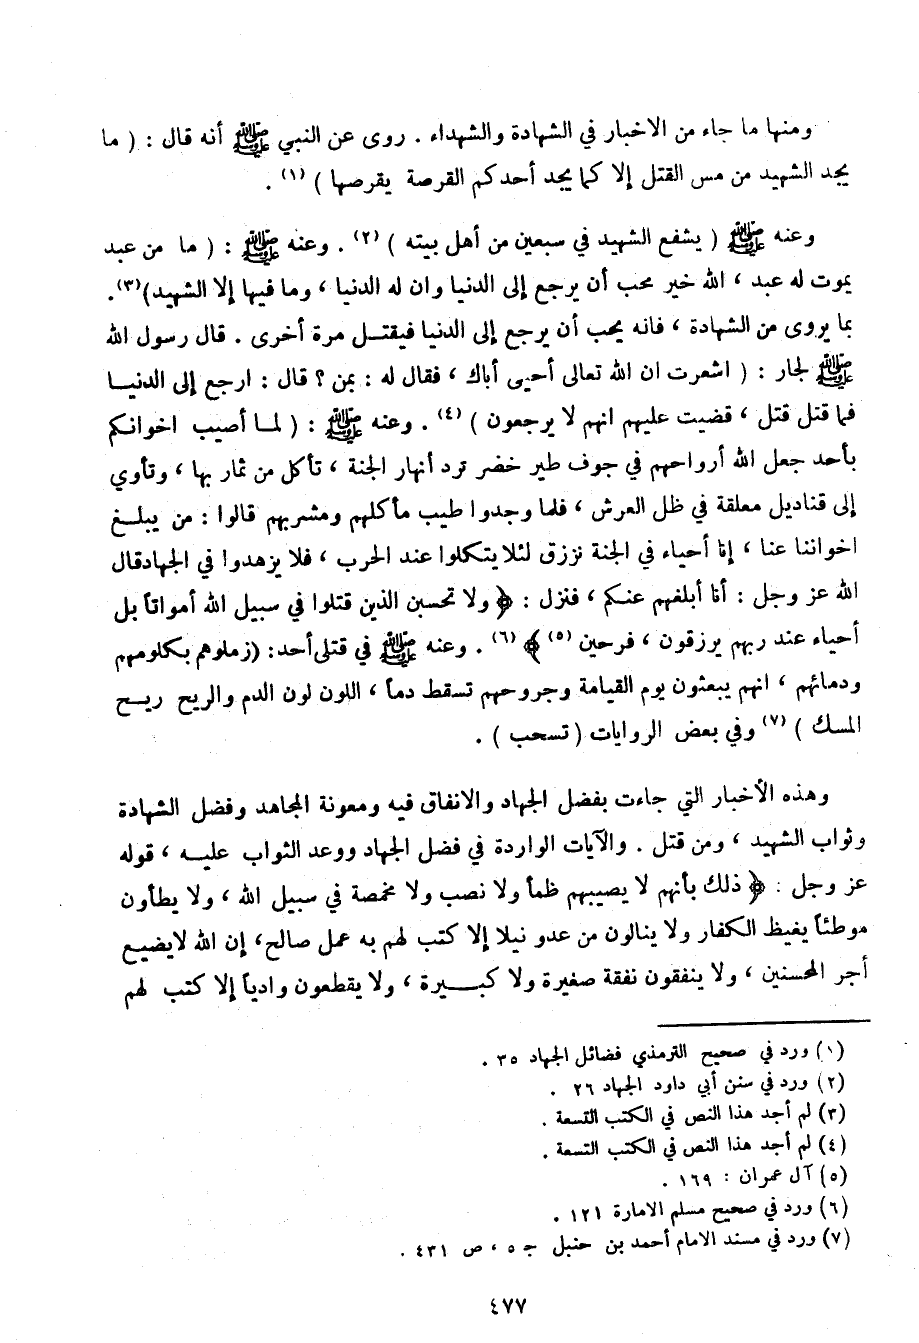 ومنها ما جاء من الاخبار في الشهادة والشهداء . روى عن النبي ﷺ أنه قال : ( ما
يجد الشهيد من مس القتل إلا كما يجد أحدكم القرصة يقرصها ) (١) .
وعنه ﷺ ( يشفع الشهيد في سبعين من أهل بيته ) (٢) . وعنه ﷺ : ( ما من عبد
يموت له عبد ، الله خير محب أن يرجع إلى الدنيا وان له الدنيا ، وما فيها إلا الشهيد)(٣).
بما يروى من الشهادة ، فانه يحب أن يرجع إلى الدنيا فيقتل مرة أخرى . قال رسول الله
ﷺ لجار : ( اشعرت ان الله تعالى أحيى أباك ، فقال له : بمن ؟ قال : ارجع إلى الدنيا
فما قتل قتل ، قضيت عليهم انهم لا يرجعون ) (٤) . وعنه ﷺ : ( لما أصيب اخوانكم
بأحد جعل الله أرواحهم في جوف طير خضر ترد أنهار الجنة ، تأكل من ثمار بها ، وتأوي
إلى قناديل معلقة في ظل العرش ، فلما وجدوا طيب مأكلهم ومشربهم قالوا : من يبلغ
اخواننا عنا ، إنا أحياء في الجنة نرزق لئلا يتكلوا عند الحرب ، فلا يزهدوا في الجهادقال
الله عز وجل : أنا أبلغهم عنكم ، فنزل : ﴿ ولا تحسبن الذين قتلوا في سبيل الله أمواتاً بل
أحياء عند ربهم يرزقون ، فرحين (٥) ﴾ (٦) . وعنه ﷺ في قتلى أحد: (زملوهم بكلومهم
ودمائهم ، انهم يبعثون يوم القيامة وجروحهم تسقط دماً ، اللون لون الدم والريح ريح
المسك ) (٧) وفي بعض الروايات ( تسحب ) .
وهذه الأخبار التي جاءت بفضل الجهاد والانفاق فيه ومعونة المجاهد وفضل الشهادة
وثواب الشهيد ، ومن قتل . والآيات الواردة في فضل الجهاد ووعد الثواب عليه ، قوله
عز وجل : ﴿ ذلك بأنهم لا يصيبهم ظمأ ولا نصب ولا مخمصة في سبيل الله ، ولا يطأون
موطئاً يغيظ الكفار ولا ينالون من عدو نيلا إلا كتب لهم به عمل صالح، إن الله لايضيع
أجر المحسنين ، ولا ينفقون نفقة صغيرة ولا كبيرة ، ولا يقطعون وادياً إلا كتب لهم
(١) ورد في صحيح الترمذي فضائل الجهاد ٣٥ .
(٢) ورد في سنن أبي داود الجهاد ٢٦ .
(٣) لم أجد هذا النص في الكتب التسعة .
(٤) لم أجد هذا النص في الكتب التسعة .
(٥) آل عمران : ١٦٩ .
(٦) ورد في صحيح مسلم الامارة ١٢١ .
(٧) ورد في مسند الامام أحمد بن حنبل ج ٥ ، ص ٤٣١ .
٤٧٧